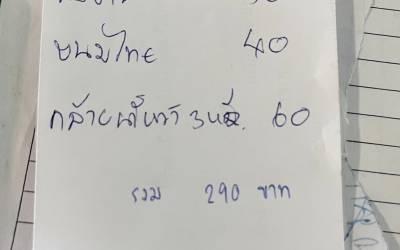 ขนมไทย 40
กล้วยน้ำหว้า 3หวี. 60
รวม 290 บาท